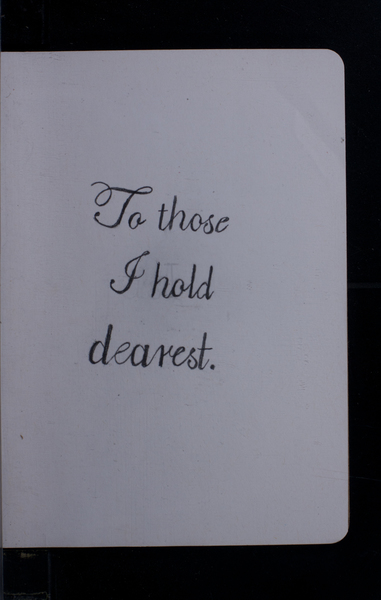 To those
I hold
dearest.